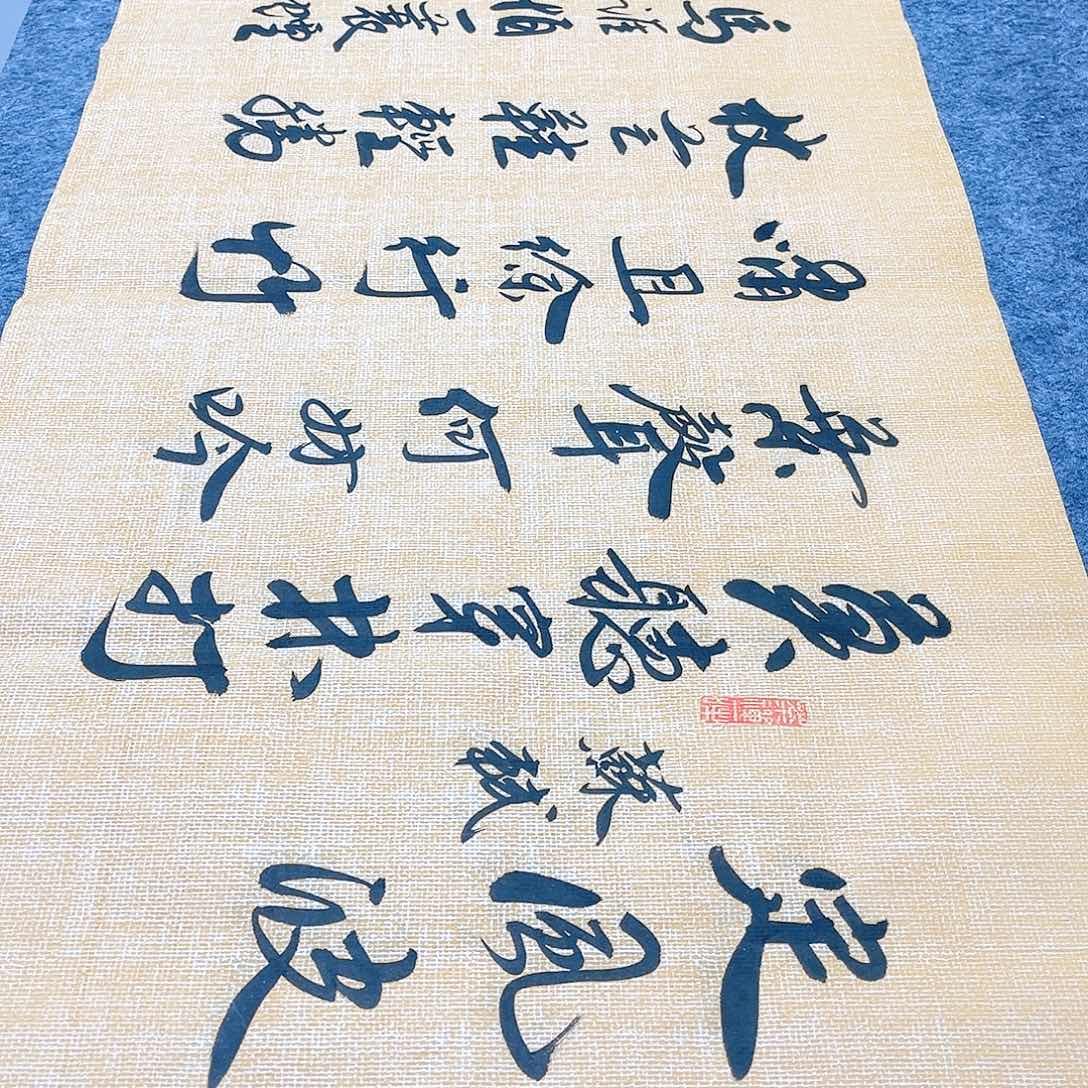 定風波
蘇軾
莫聽穿林打
葉聲何妨吟
嘯且徐行竹
杖芒鞋輕勝
馬誰怕一蓑煙